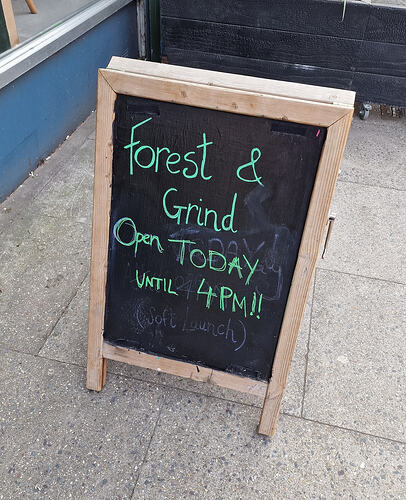 Forest &
Grind
Open TODAY
UNTIL 4PM!!
(Soft Launch)